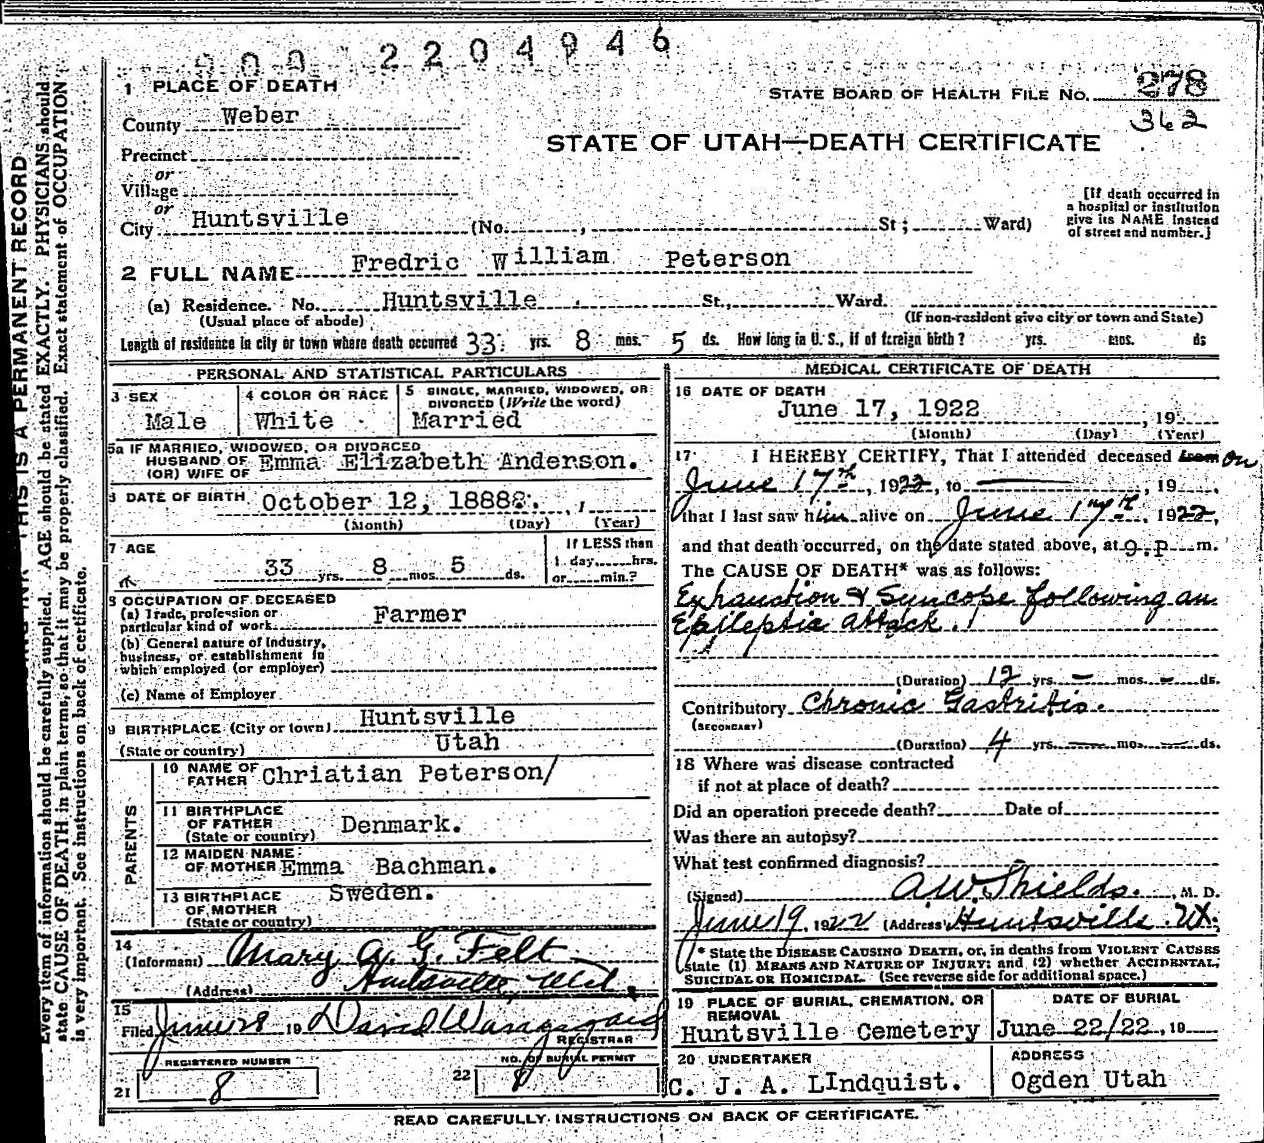 000 2204946
1 PLACE OF DEATH
STATE BOARD OF HEALTH FILE NO. 278
362
County Weber
STATE OF UTAH—DEATH CERTIFICATE
Precinct
or
Village
or
City Huntsville (No. , St; Ward)
[If death occurred in
a hospital or institution
give its NAME instead
of street and number.]
2 FULL NAME Fredric William Peterson
(a) Residence. No. Huntsville St., Ward.
(Usual place of abode)
(If non-resident give city or town and State)
Length of residence in city or town where death occurred 33 yrs. 8 mos. 5 ds. How long in U. S., if of foreign birth? yrs. mos. ds
PERSONAL AND STATISTICAL PARTICULARS
3 SEX
Male
4 COLOR OR RACE
White
5 SINGLE, MARRIED, WIDOWED, OR
DIVORCED (Write the word)
Married
5a IF MARRIED, WIDOWED, OR DIVORCED
HUSBAND OF
(OR) WIFE OF Emma Elizabeth Anderson.
6 DATE OF BIRTH October 12, 1888
(Month) (Day) (Year)
7 AGE
33 yrs. 8 mos 5 ds.
If LESS than
1 day, hrs.
or min.?
8 OCCUPATION OF DECEASED
(a) Trade, profession or
particular kind of work Farmer
(b) General nature of Industry,
business, or establishment in
which employed (or employer)
(c) Name of Employer
9 BIRTHPLACE (City or town) Huntsville
(State or country) Utah
PARENTS
10 NAME OF
FATHER Chriatian Peterson/
11 BIRTHPLACE
OF FATHER
(State or country) Denmark.
12 MAIDEN NAME
OF MOTHER Emma Bachman.
13 BIRTHPLACE
OF MOTHER
(State or country) Sweden.
14
(Informant) Mary A. G. Felt
(Address) Huntsville, Utah.
15
Filed June 28 19 David
REGISTRAR
REGISTERED NUMBER
21 8
NO. OF BURIAL PERMIT
22 8
MEDICAL CERTIFICATE OF DEATH
16 DATE OF DEATH
June 17, 1922 , 19
(Month) (Day) (Year)
17 I HEREBY CERTIFY, That I attended deceased from on
June 17th, 1922, to , 19
that I last saw him alive on June 17th, 1922,
and that death occurred, on the date stated above, at 9.p m.
The CAUSE OF DEATH* was as follows:
Exhaustion & Syncope following an
Epileptic attack.
(Duration) 12 yrs. – mos. – ds.
Contributory Chronic Gastritis.
(SECONDARY)
(Duration) 4 yrs. — mos. — ds.
18 Where was disease contracted
if not at place of death?
Did an operation precede death? Date of
Was there an autopsy?
What test confirmed diagnosis?
(Signed) A.W. Shields. , M. D.
June 19, 1922 (Address) Huntsville Ut.
* State the DISEASE CAUSING DEATH, or, in deaths from VIOLENT CAUSES
state (1) MEANS AND NATURE OF INJURY; and (2) whether ACCIDENTAL,
SUICIDAL OR HOMICIDAL. (See reverse side for additional space.)
19 PLACE OF BURIAL, CREMATION, OR
REMOVAL
Huntsville Cemetery
DATE OF BURIAL
June 22/22 , 19
20 UNDERTAKER
C. J. A. LIndquist.
ADDRESS
Ogden Utah
READ CAREFULLY INSTRUCTIONS ON BACK OF CERTIFICATE.
THIS IS A PERMANENT RECORD
Every item of information should be carefully supplied. AGE should be stated EXACTLY. PHYSICIANS should
state CAUSE OF DEATH in plain terms, so that it may be properly classified. Exact statement of OCCUPATION
is very important. See instructions on back of certificate.